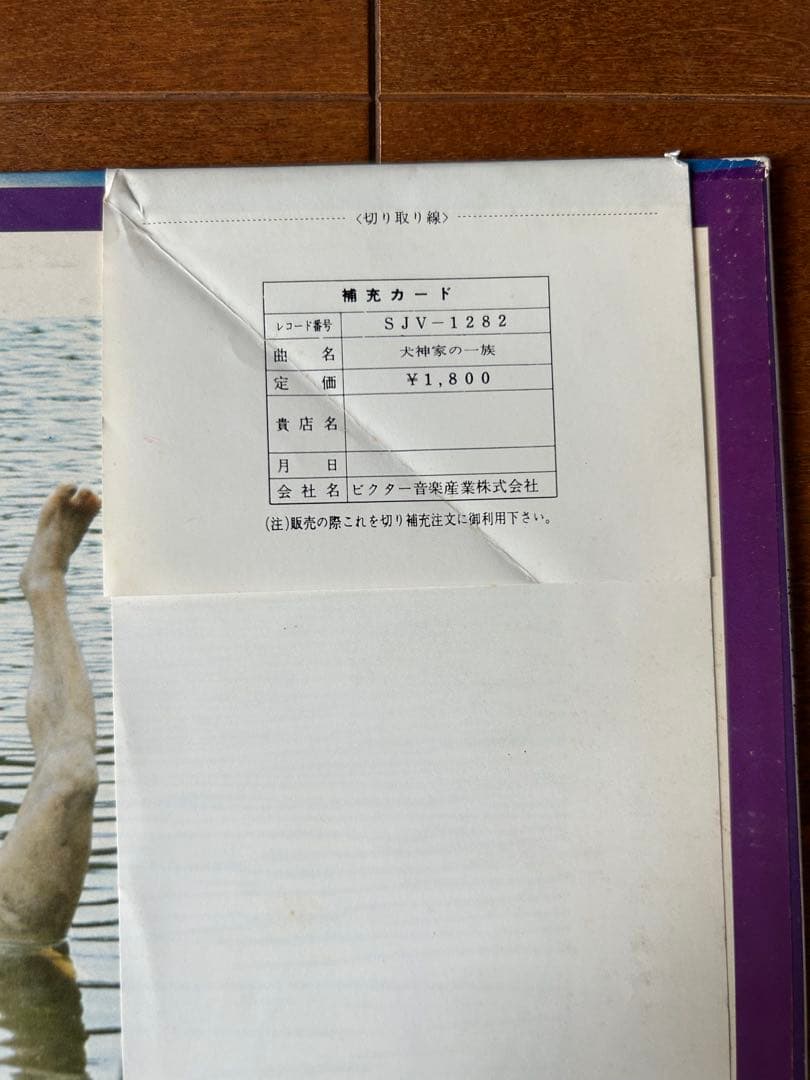 〈切り取り線〉
補充カード
レコード番号 SJV-1282
曲名 犬神家の一族
定価 ¥1,800
貴店名
月日
会社名 ビクター音楽産業株式会社
(注)販売の際これを切り補充注文に御利用下さい。